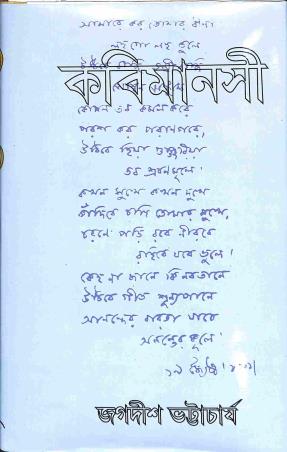 আমারে কর তোমার বীণা
লহ গো লহ তুলে
উঠিবে
কবিমানসী
কোমল তব কমলকরে
পরশ কর পরাণপরে,
উঠিবে হিয়া গুঞ্জরিয়া
তব শ্রবণমূলে!
কখন সুখে কখন দুখে
কাঁদিবে চাহি তোমার মুখে,
চরণে পড়ি রবে নীরবে
রহিবে যবে ভুলে!
কেহ না জানে কি নব তানে
উঠিবে গীত শূন্যপানে
আনন্দের বারতা যাবে
অনন্তের কূলে!
জগদীশ ভট্টাচার্য